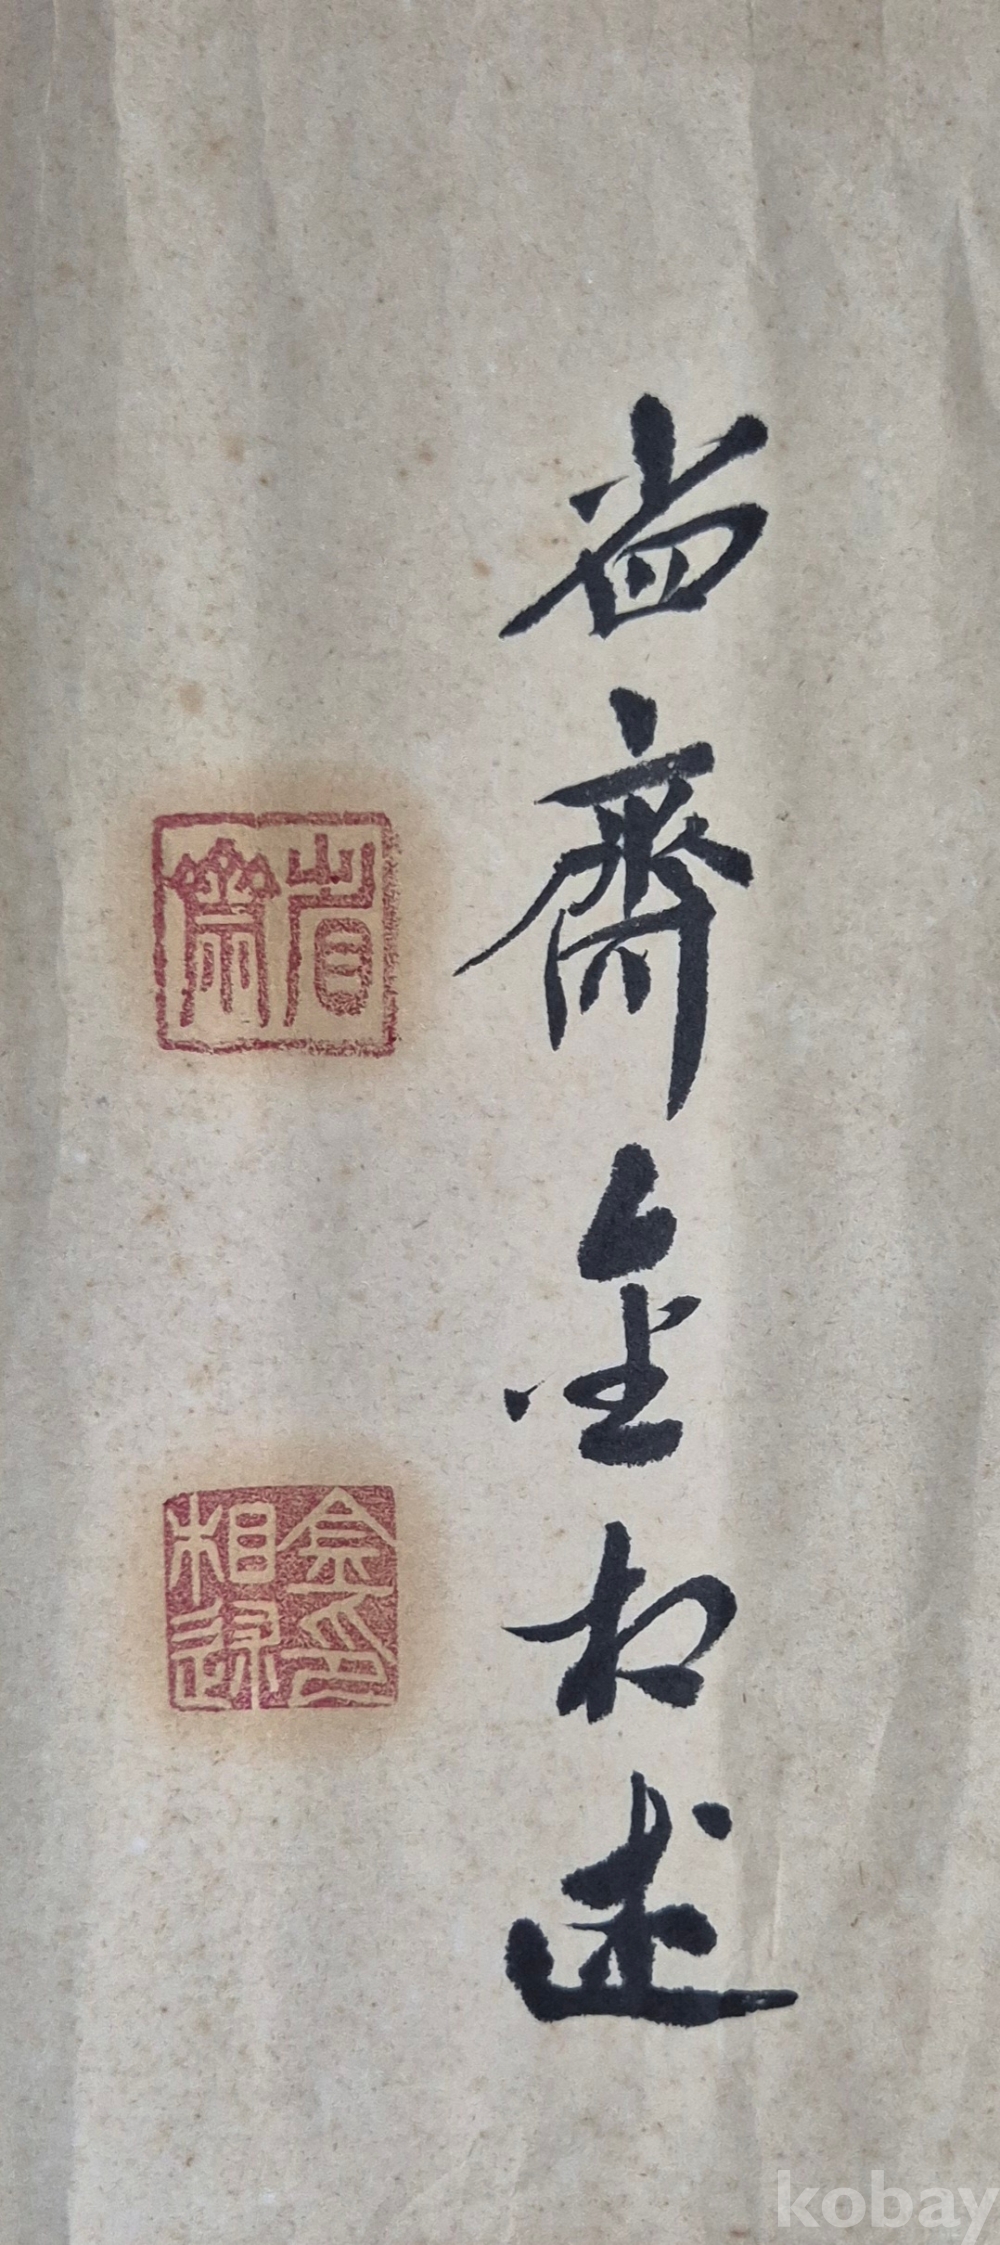 省齋金相述
省齋
金相述印
kobay